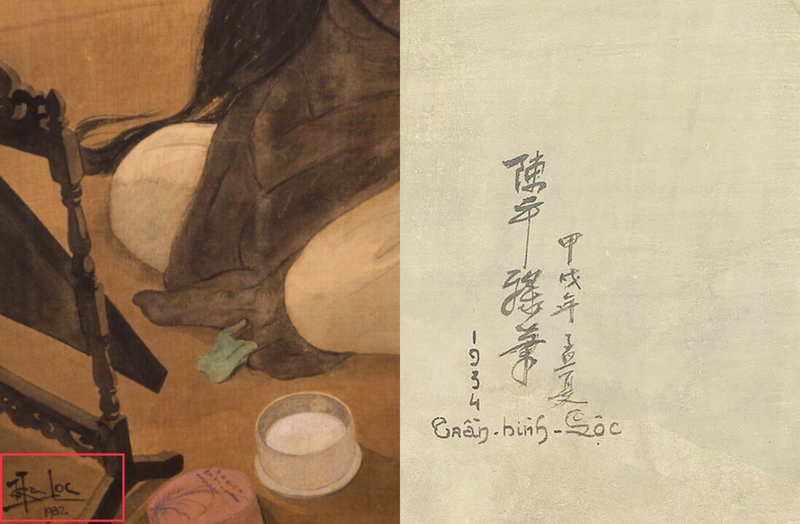 Loc
1932
甲戌年孟夏
陳平祿筆
1934
Trần-bình-Lộc